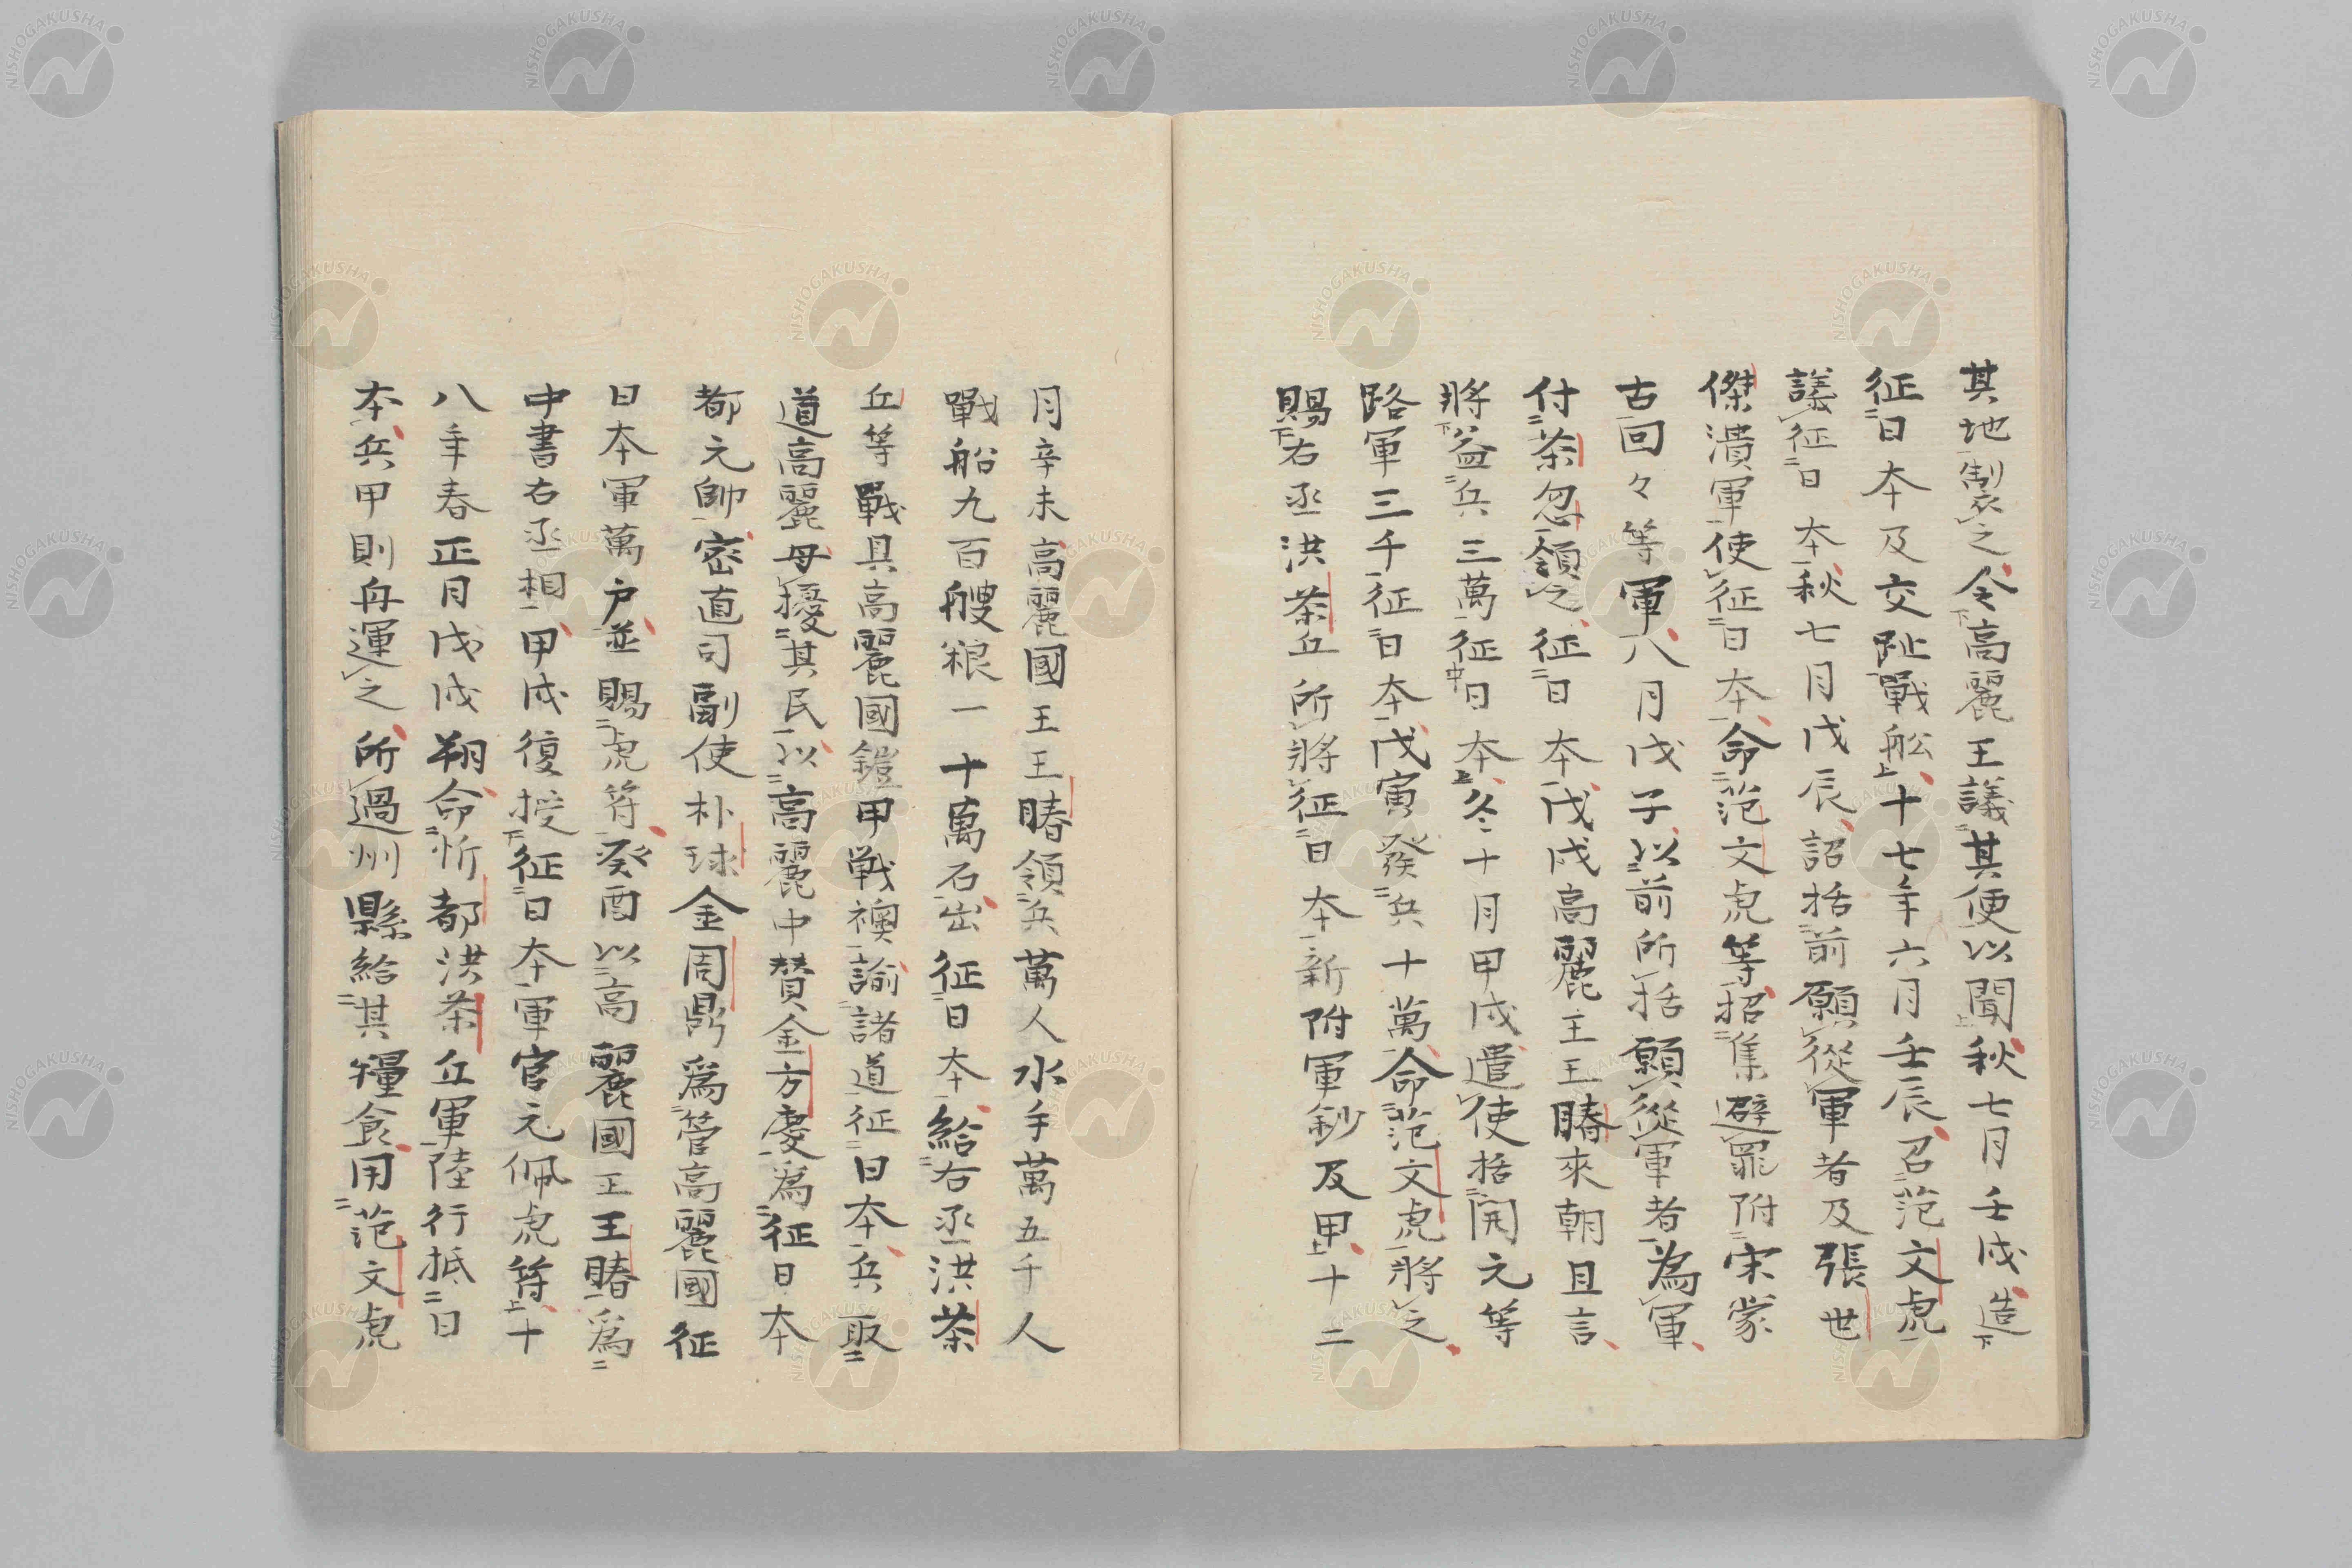 其地製之令高麗王議其便以聞秋七月壬戌造
征日本及交趾戰舩十七年六月壬辰召范文虎
議征日本秋七月戊辰詔括前願從軍者及張世
傑潰軍使征日本命范文虎等招集避罪附宋蒙
古回々等軍八月戊子以前所括願從軍者為軍
付茶忽領之征日本戊戌高麗王王賰來朝且言
將益兵三萬征日本冬十月甲戌遣使括開元等
路軍三千征日本戊寅發兵十萬命范文虎將之
賜右丞洪茶丘所將征日本新附軍鈔及甲十二
月辛未高麗國王王賰領兵萬人水手萬五千人
戰船九百艘粮一十萬石出征日本給右丞洪茶
丘等戰具高麗國鎧甲戦襖諭諸道征日本兵取
道高麗毋擾其民以高麗中賛金方慶為征日本
都元帥密直司副使朴球金周鼎爲管高麗國征
日本軍萬户並賜虎符癸酉以高麗國王王賰爲
中書右丞相甲戌復授征日本軍官元佩虎符十
八年春正月戊戌朔命忻都洪茶丘軍陸行抵日
本兵甲則舟運之所過州縣給其糧食用范文虎
NISHOGAKUSHA